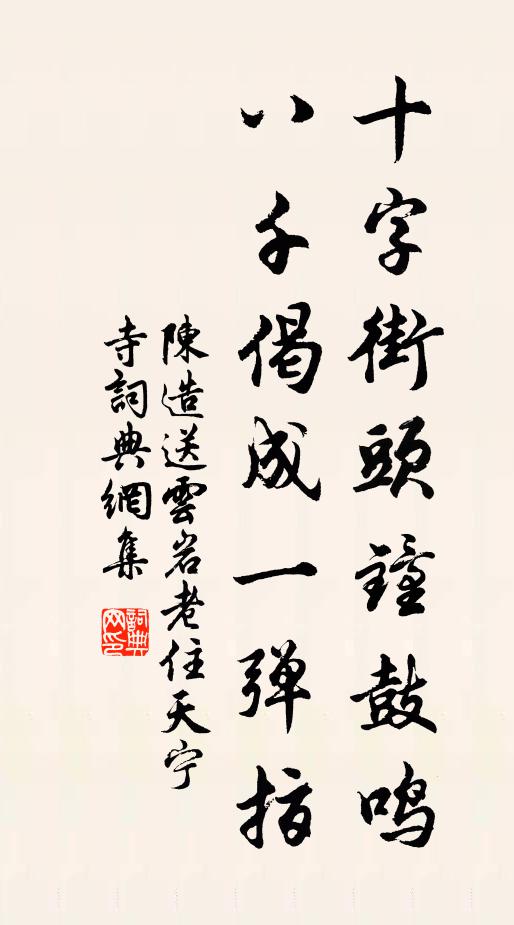 十字街頭鐘鼓鳴
八千偈成一弹指
陳造送雲岩老住天宁
寺詞典網集
詞典
网印